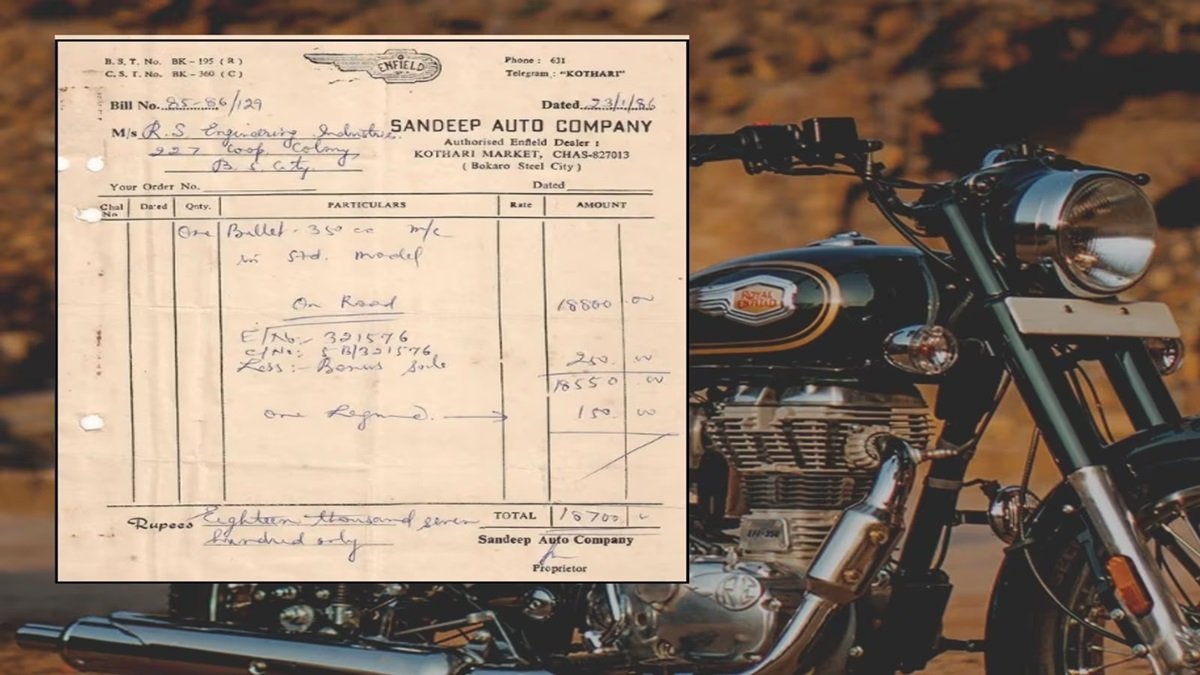 B. S. T. No. BK - 195 ( R )
C. S. T. No. BK - 360 ( C )
ENFIELD
Phone : 631
Telegram : "KOTHARI"
Bill No. 85-86/129
Dated 23/1/86
M/s R. S. Engineering Industries
227 Coop. Colony,
B. S. City
SANDEEP AUTO COMPANY
Authorised Enfield Dealer :
KOTHARI MARKET, CHAS-827013
( Bokaro Steel City )
Your Order No.
Dated
Chal No Dated Qnty. PARTICULARS Rate AMOUNT
One Bullet - 350 cc m/c
in Std. model
On Road 18800 00
E/No:- 321576
C/No:- 5B/321576
Less:- Bonus 250. 00
18550 00
One 150. 00
TOTAL 18700
Rupees Eighteen thousand seven
hundred only
Sandeep Auto Company
Proprietor
ROYAL
ENFIELD